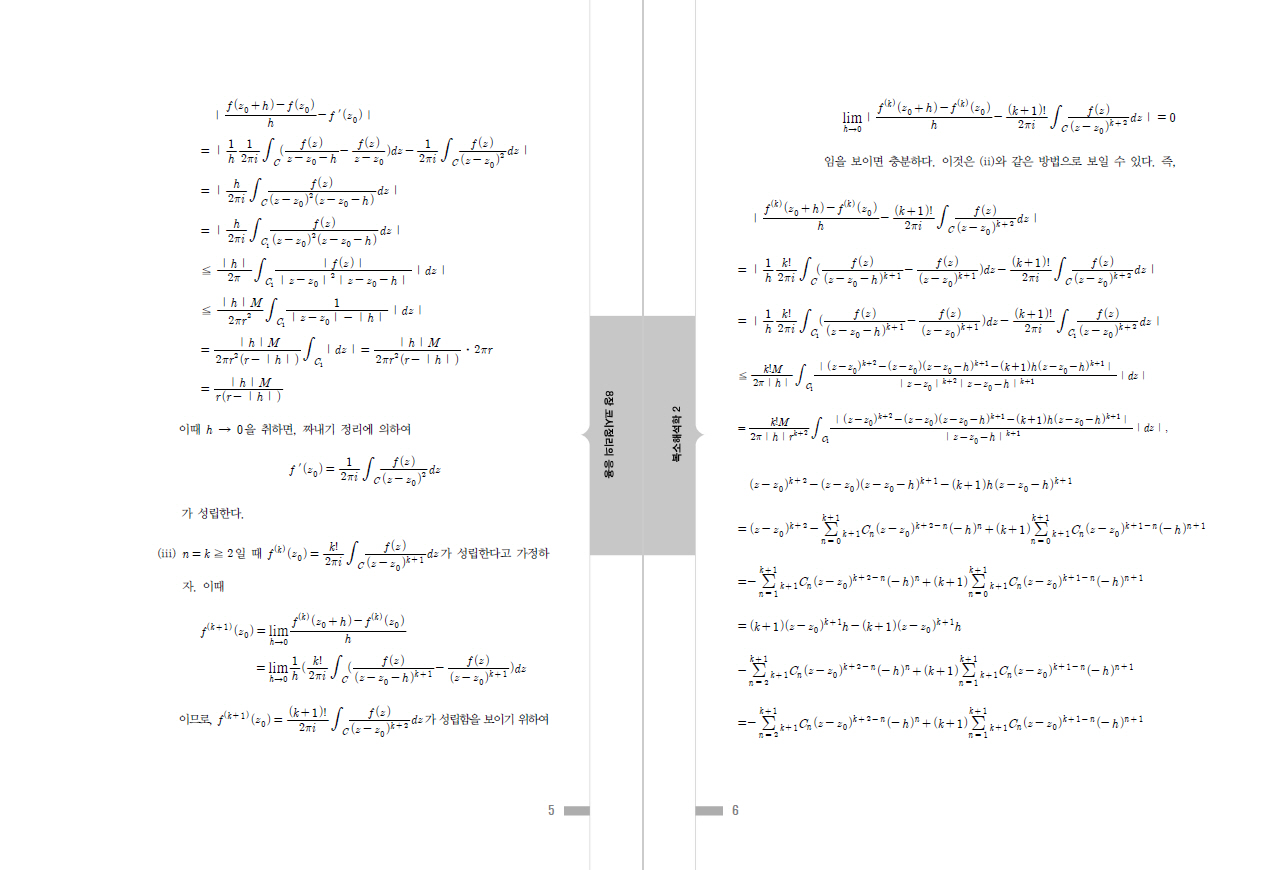 | \frac{f(z_0+h)-f(z_0)}{h} - f'(z_0) |
= | \frac{1}{h} \frac{1}{2πi} ∫_C ( \frac{f(z)}{z-z_0-h} - \frac{f(z)}{z-z_0} ) dz - \frac{1}{2πi} ∫_C \frac{f(z)}{(z-z_0)^2} dz |
= | \frac{h}{2πi} ∫_C \frac{f(z)}{(z-z_0)^2(z-z_0-h)} dz |
= | \frac{h}{2πi} ∫_{C_1} \frac{f(z)}{(z-z_0)^2(z-z_0-h)} dz |
≦ \frac{|h|}{2π} ∫_{C_1} \frac{|f(z)|}{|z-z_0|^2|z-z_0-h|} |dz|
≦ \frac{|h|M}{2πr^2} ∫_{C_1} \frac{1}{|z-z_0|-|h|} |dz|
= \frac{|h|M}{2πr^2(r-|h|)} ∫_{C_1} |dz| = \frac{|h|M}{2πr^2(r-|h|)} · 2πr
= \frac{|h|M}{r(r-|h|)}
이때 h → 0을 취하면, 짜내기 정리에 의하여
f'(z_0) = \frac{1}{2πi} ∫_C \frac{f(z)}{(z-z_0)^2} dz
가 성립한다.
(iii) n=k≧2일 때 f^{(k)}(z_0) = \frac{k!}{2πi} ∫_C \frac{f(z)}{(z-z_0)^{k+1}} dz가 성립한다고 가정하
자. 이때
f^{(k+1)}(z_0) = \lim_{h→0} \frac{f^{(k)}(z_0+h)-f^{(k)}(z_0)}{h}
= \lim_{h→0} \frac{1}{h} ( \frac{k!}{2πi} ∫_C ( \frac{f(z)}{(z-z_0-h)^{k+1}} - \frac{f(z)}{(z-z_0)^{k+1}} ) dz
이므로, f^{(k+1)}(z_0) = \frac{(k+1)!}{2πi} ∫_C \frac{f(z)}{(z-z_0)^{k+2}} dz가 성립함을 보이기 위하여
5
8장 코시정리의 응용
복소해석학 2
\lim_{h→0} | \frac{f^{(k)}(z_0+h)-f^{(k)}(z_0)}{h} - \frac{(k+1)!}{2πi} ∫_C \frac{f(z)}{(z-z_0)^{k+2}} dz | = 0
임을 보이면 충분하다. 이것은 (ii)와 같은 방법으로 보일 수 있다. 즉,
| \frac{f^{(k)}(z_0+h)-f^{(k)}(z_0)}{h} - \frac{(k+1)!}{2πi} ∫_C \frac{f(z)}{(z-z_0)^{k+2}} dz |
= | \frac{1}{h} \frac{k!}{2πi} ∫_C ( \frac{f(z)}{(z-z_0-h)^{k+1}} - \frac{f(z)}{(z-z_0)^{k+1}} ) dz - \frac{(k+1)!}{2πi} ∫_C \frac{f(z)}{(z-z_0)^{k+2}} dz |
= | \frac{1}{h} \frac{k!}{2πi} ∫_{C_1} ( \frac{f(z)}{(z-z_0-h)^{k+1}} - \frac{f(z)}{(z-z_0)^{k+1}} ) dz - \frac{(k+1)!}{2πi} ∫_{C_1} \frac{f(z)}{(z-z_0)^{k+2}} dz |
≦ \frac{k!M}{2π|h|} ∫_{C_1} \frac{|(z-z_0)^{k+2}-(z-z_0)(z-z_0-h)^{k+1}-(k+1)h(z-z_0-h)^{k+1}|}{|z-z_0|^{k+2}|z-z_0-h|^{k+1}} |dz|
= \frac{k!M}{2π|h|r^{k+2}} ∫_{C_1} \frac{|(z-z_0)^{k+2}-(z-z_0)(z-z_0-h)^{k+1}-(k+1)h(z-z_0-h)^{k+1}|}{|z-z_0-h|^{k+1}} |dz|,
(z-z_0)^{k+2}-(z-z_0)(z-z_0-h)^{k+1}-(k+1)h(z-z_0-h)^{k+1}
= (z-z_0)^{k+2} - \sum_{n=0}^{k+1} {}_{k+1}C_n(z-z_0)^{k+2-n}(-h)^n + (k+1)\sum_{n=0}^{k+1} {}_{k+1}C_n(z-z_0)^{k+1-n}(-h)^{n+1}
= -\sum_{n=1}^{k+1} {}_{k+1}C_n(z-z_0)^{k+2-n}(-h)^n + (k+1)\sum_{n=0}^{k+1} {}_{k+1}C_n(z-z_0)^{k+1-n}(-h)^{n+1}
= (k+1)(z-z_0)^{k+1}h-(k+1)(z-z_0)^{k+1}h
-\sum_{n=2}^{k+1} {}_{k+1}C_n(z-z_0)^{k+2-n}(-h)^n + (k+1)\sum_{n=1}^{k+1} {}_{k+1}C_n(z-z_0)^{k+1-n}(-h)^{n+1}
= -\sum_{n=2}^{k+1} {}_{k+1}C_n(z-z_0)^{k+2-n}(-h)^n + (k+1)\sum_{n=1}^{k+1} {}_{k+1}C_n(z-z_0)^{k+1-n}(-h)^{n+1}
6